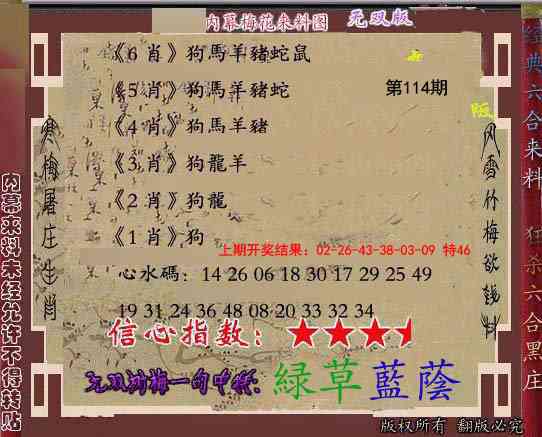 内幕梅花来料图 无双版
《6 肖》狗馬羊豬蛇鼠
《5 肖》狗馬羊豬蛇
第114期
《4 肖》狗馬羊豬
《3 肖》狗龍羊
《2 肖》狗龍
《1 肖》狗
上期开奖结果：02-26-43-38-03-09 特46
心水碼：14 26 06 18 30 17 29 25 49
19 31 24 36 48 08 20 33 32 34
信心指数：
无双鸿梅一句中特：綠草藍蔭
版权所有 翻版必究
寒梅屠庄生肖
风雪竹梅欲钱料
内幕来料未经允许不得转贴
经典六合来料 狂杀六合黑庄